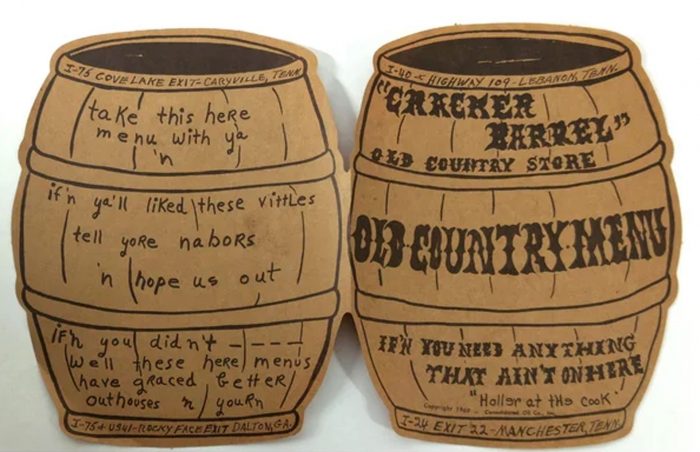 I-75 COVE LAKE EXIT- CARYVILLE, TENN.
take this here
menu with ya
'n
if'n ya'll liked these vittles
tell yore nabors
'n hope us out
if'n you didn't - - - -
well these here menus
have graced better
outhouses 'n yourn
I-75 & US41-ROCKY FACE EXIT DALTON, GA.
I-40 & HIGHWAY 109-LEBANON, TENN.
"CRACKER
BARREL"
OLD COUNTRY STORE
OLD COUNTRY MENU
IF'N YOU NEED ANYTHING
THAT AIN'T ON HERE
"Holler at the cook"
Copyright Consolidated Oil Co., Inc.
I-24 EXIT 22-MANCHESTER, TENN.